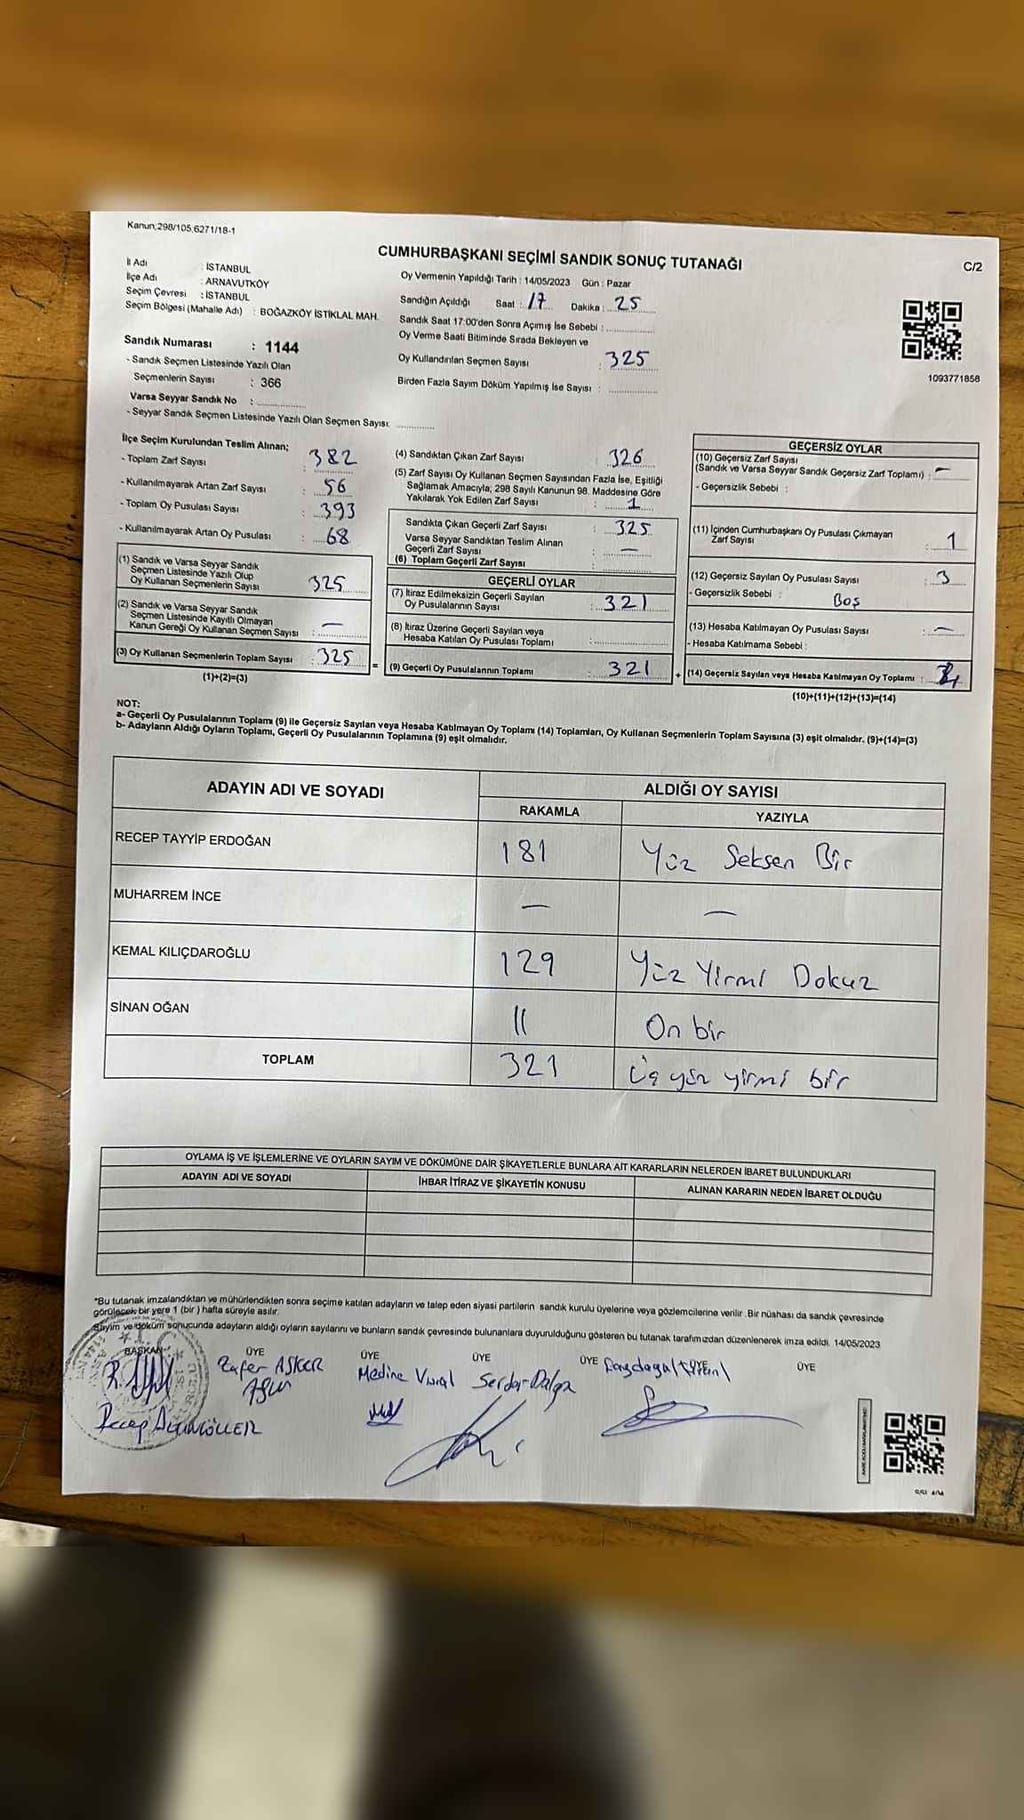 Kanun;298/105,6271/18-1
CUMHURBAŞKANI SEÇİMİ SANDIK SONUÇ TUTANAĞI
C/2
İl Adı : İSTANBUL
İlçe Adı : ARNAVUTKÖY
Seçim Çevresi : İSTANBUL
Seçim Bölgesi (Mahalle Adı) : BOĞAZKÖY İSTİKLAL MAH.
Sandık Numarası : 1144
- Sandık Seçmen Listesinde Yazılı Olan
Seçmenlerin Sayısı : 366
Varsa Seyyar Sandık No :
- Seyyar Sandık Seçmen Listesinde Yazılı Olan Seçmen Sayısı:
Oy Vermenin Yapıldığı Tarih : 14/05/2023 Gün : Pazar
Sandığın Açıldığı Saat : 17 Dakika : 25
Sandık Saat 17:00'den Sonra Açılmış İse Sebebi :
Oy Verme Saati Bitiminde Sırada Bekleyen ve
Oy Kullandırılan Seçmen Sayısı : 325
Birden Fazla Sayım Döküm Yapılmış İse Sayısı :
1093771858
İlçe Seçim Kurulundan Teslim Alınan;
- Toplam Zarf Sayısı : 382
- Kullanılmayarak Artan Zarf Sayısı : 56
- Toplam Oy Pusulası Sayısı : 393
- Kullanılmayarak Artan Oy Pusulası : 68
(1) Sandık ve Varsa Seyyar Sandık
Seçmen Listesinde Yazılı Olup
Oy Kullanan Seçmenlerin Sayısı : 325
(2) Sandık ve Varsa Seyyar Sandık
Seçmen Listesinde Kayıtlı Olmayan
Kanun Gereği Oy Kullanan Seçmen Sayısı : —
(3) Oy Kullanan Seçmenlerin Toplam Sayısı : 325
(1)+(2)=(3)
(4) Sandıktan Çıkan Zarf Sayısı : 326
(5) Zarf Sayısı Oy Kullanan Seçmen Sayısından Fazla İse, Eşitliği
Sağlamak Amacıyla, 298 Sayılı Kanunun 98. Maddesine Göre
Yakılarak Yok Edilen Zarf Sayısı : 1
Sandıkta Çıkan Geçerli Zarf Sayısı : 325
Varsa Seyyar Sandıktan Teslim Alınan
Geçerli Zarf Sayısı : —
(6) Toplam Geçerli Zarf Sayısı :
GEÇERLİ OYLAR
(7) İtiraz Edilmeksizin Geçerli Sayılan
Oy Pusulalarının Sayısı : 321
(8) İtiraz Üzerine Geçerli Sayılan veya
Hesaba Katılan Oy Pusulası Toplamı :
= (9) Geçerli Oy Pusulalarının Toplamı : 321
GEÇERSİZ OYLAR
(10) Geçersiz Zarf Sayısı
(Sandık ve Varsa Seyyar Sandık Geçersiz Zarf Toplamı) : —
- Geçersizlik Sebebi :
(11) İçinden Cumhurbaşkanı Oy Pusulası Çıkmayan
Zarf Sayısı : 1
(12) Geçersiz Sayılan Oy Pusulası Sayısı : 3
- Geçersizlik Sebebi : Boş
(13) Hesaba Katılmayan Oy Pusulası Sayısı : —
- Hesaba Katılmama Sebebi :
+ (14) Geçersiz Sayılan veya Hesaba Katılmayan Oy Toplamı :
(10)+(11)+(12)+(13)=(14)
NOT:
a- Geçerli Oy Pusulalarının Toplamı (9) ile Geçersiz Sayılan veya Hesaba Katılmayan Oy Toplamı (14) Toplamları, Oy Kullanan Seçmenlerin Toplam Sayısına (3) eşit olmalıdır. (9)+(14)=(3)
b- Adayların Aldığı Oyların Toplamı, Geçerli Oy Pusulalarının Toplamına (9) eşit olmalıdır.
ADAYIN ADI VE SOYADI ALDIĞI OY SAYISI
RAKAMLA YAZIYLA
RECEP TAYYİP ERDOĞAN 181 Yüz Seksen Bir
MUHARREM İNCE — —
KEMAL KILIÇDAROĞLU 129 Yüz Yirmi Dokuz
SİNAN OĞAN 11 On bir
TOPLAM 321 Üç yüz yirmi bir
OYLAMA İŞ VE İŞLEMLERİNE VE OYLARIN SAYIM VE DÖKÜMÜNE DAİR ŞİKAYETLERLE BUNLARA AİT KARARLARIN NELERDEN İBARET BULUNDUKLARI
ADAYIN ADI VE SOYADI İHBAR İTİRAZ VE ŞİKAYETİN KONUSU ALINAN KARARIN NEDEN İBARET OLDUĞU
*Bu tutanak imzalandıktan ve mühürlendikten sonra seçime katılan adayların ve talep eden siyasi partilerin sandık kurulu üyelerine veya gözlemcilerine verilir .Bir nüshası da sandık çevresinde
görülecek bir yere 1 (bir) hafta süreyle asılır.
Sayım ve döküm sonucunda adayların aldığı oyların sayılarını ve bunların sandık çevresinde bulunanlara duyurulduğunu gösteren bu tutanak tarafımızdan düzenlenerek imza edildi. 14/05/2023
BAŞKAN ÜYE ÜYE ÜYE ÜYE ÜYE ÜYE
Zafer ASKER Medine Vural Serdar Dalga
Recep